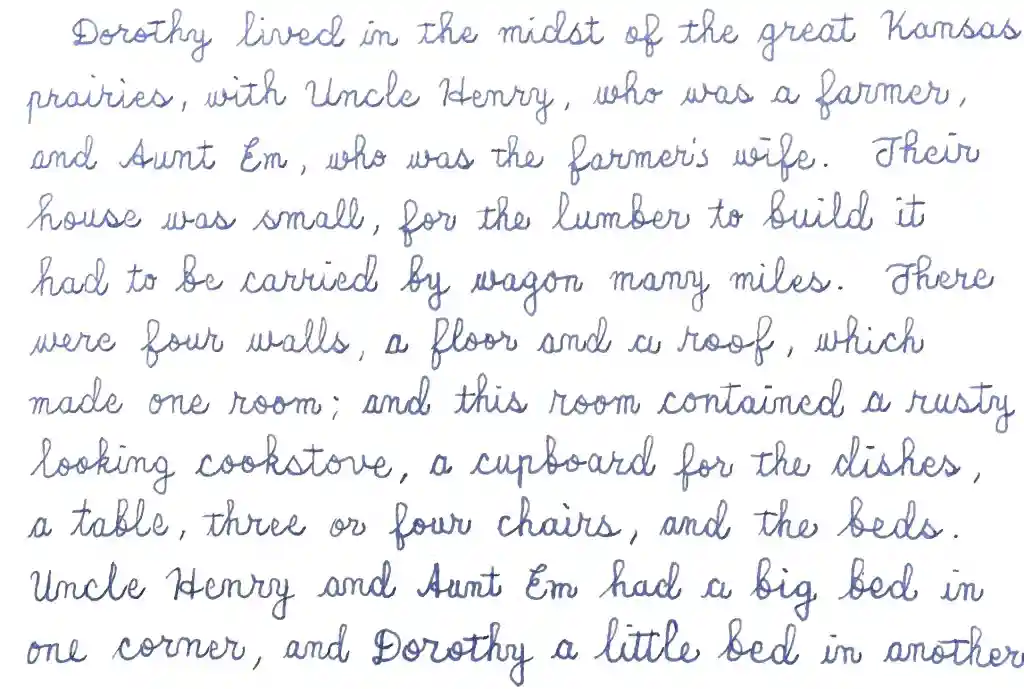 Dorothy lived in the midst of the great Kansas
prairies, with Uncle Henry, who was a farmer,
and Aunt Em, who was the farmer's wife. Their
house was small, for the lumber to build it
had to be carried by wagon many miles. There
were four walls, a floor and a roof, which
made one room; and this room contained a rusty
looking cookstove, a cupboard for the dishes,
a table, three or four chairs, and the beds.
Uncle Henry and Aunt Em had a big bed in
one corner, and Dorothy a little bed in another